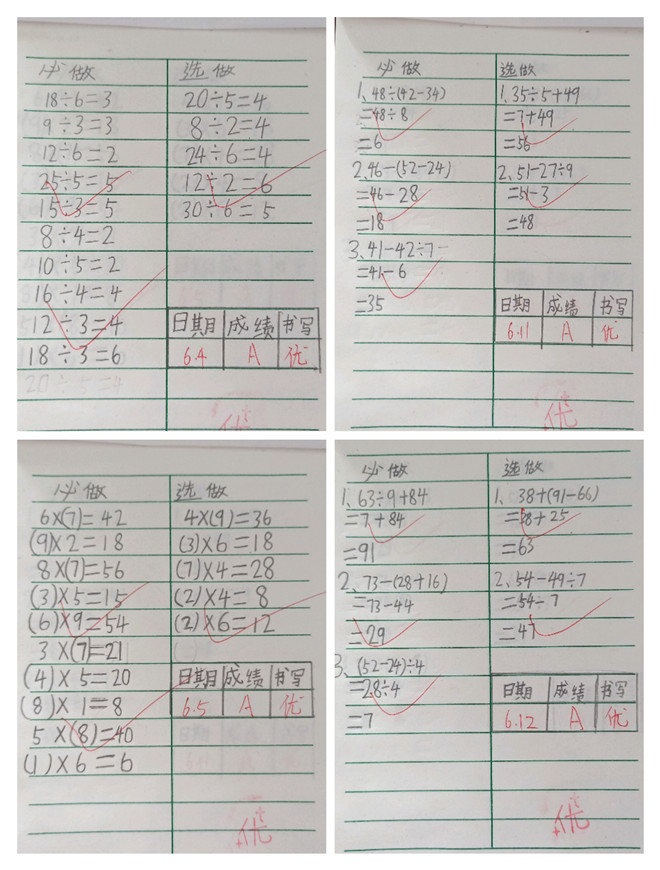 必做
18÷6=3
9÷3=3
12÷6=2
25÷5=5
15÷3=5
8÷4=2
10÷5=2
16÷4=4
12÷3=4
18÷3=6
20÷5=4
选做
20÷5=4
8÷2=4
24÷6=4
12÷2=6
30÷6=5
日期 成绩 书写
6.4 A 优
优
必做
1、48÷(42-34)
=48÷8
=6
2、46-(52-24)
=46-28
=18
3、41-42÷7
=41-6
=35
选做
1、35÷5+49
=7+49
=56
2、51-27÷9
=51-3
=48
日期 成绩 书写
6.11 A 优
优
必做
6×(7)=42
(9)×2=18
8×(7)=56
(3)×5=15
(6)×9=54
3×(7)=21
(4)×5=20
(8)×1=8
5×(8)=40
(1)×6=6
选做
4×(9)=36
(3)×6=18
(7)×4=28
(2)×4=8
(2)×6=12
日期 成绩 书写
6.5 A 优
优
必做
1、63÷9+84
=7+84
=91
2、73-(28+16)
=73-44
=29
3、(52-24)÷4
=28÷4
=7
选做
1、38+(91-66)
=38+25
=63
2、54-49÷7
=54-7
=47
日期 成绩 书写
6.12 A 优
优